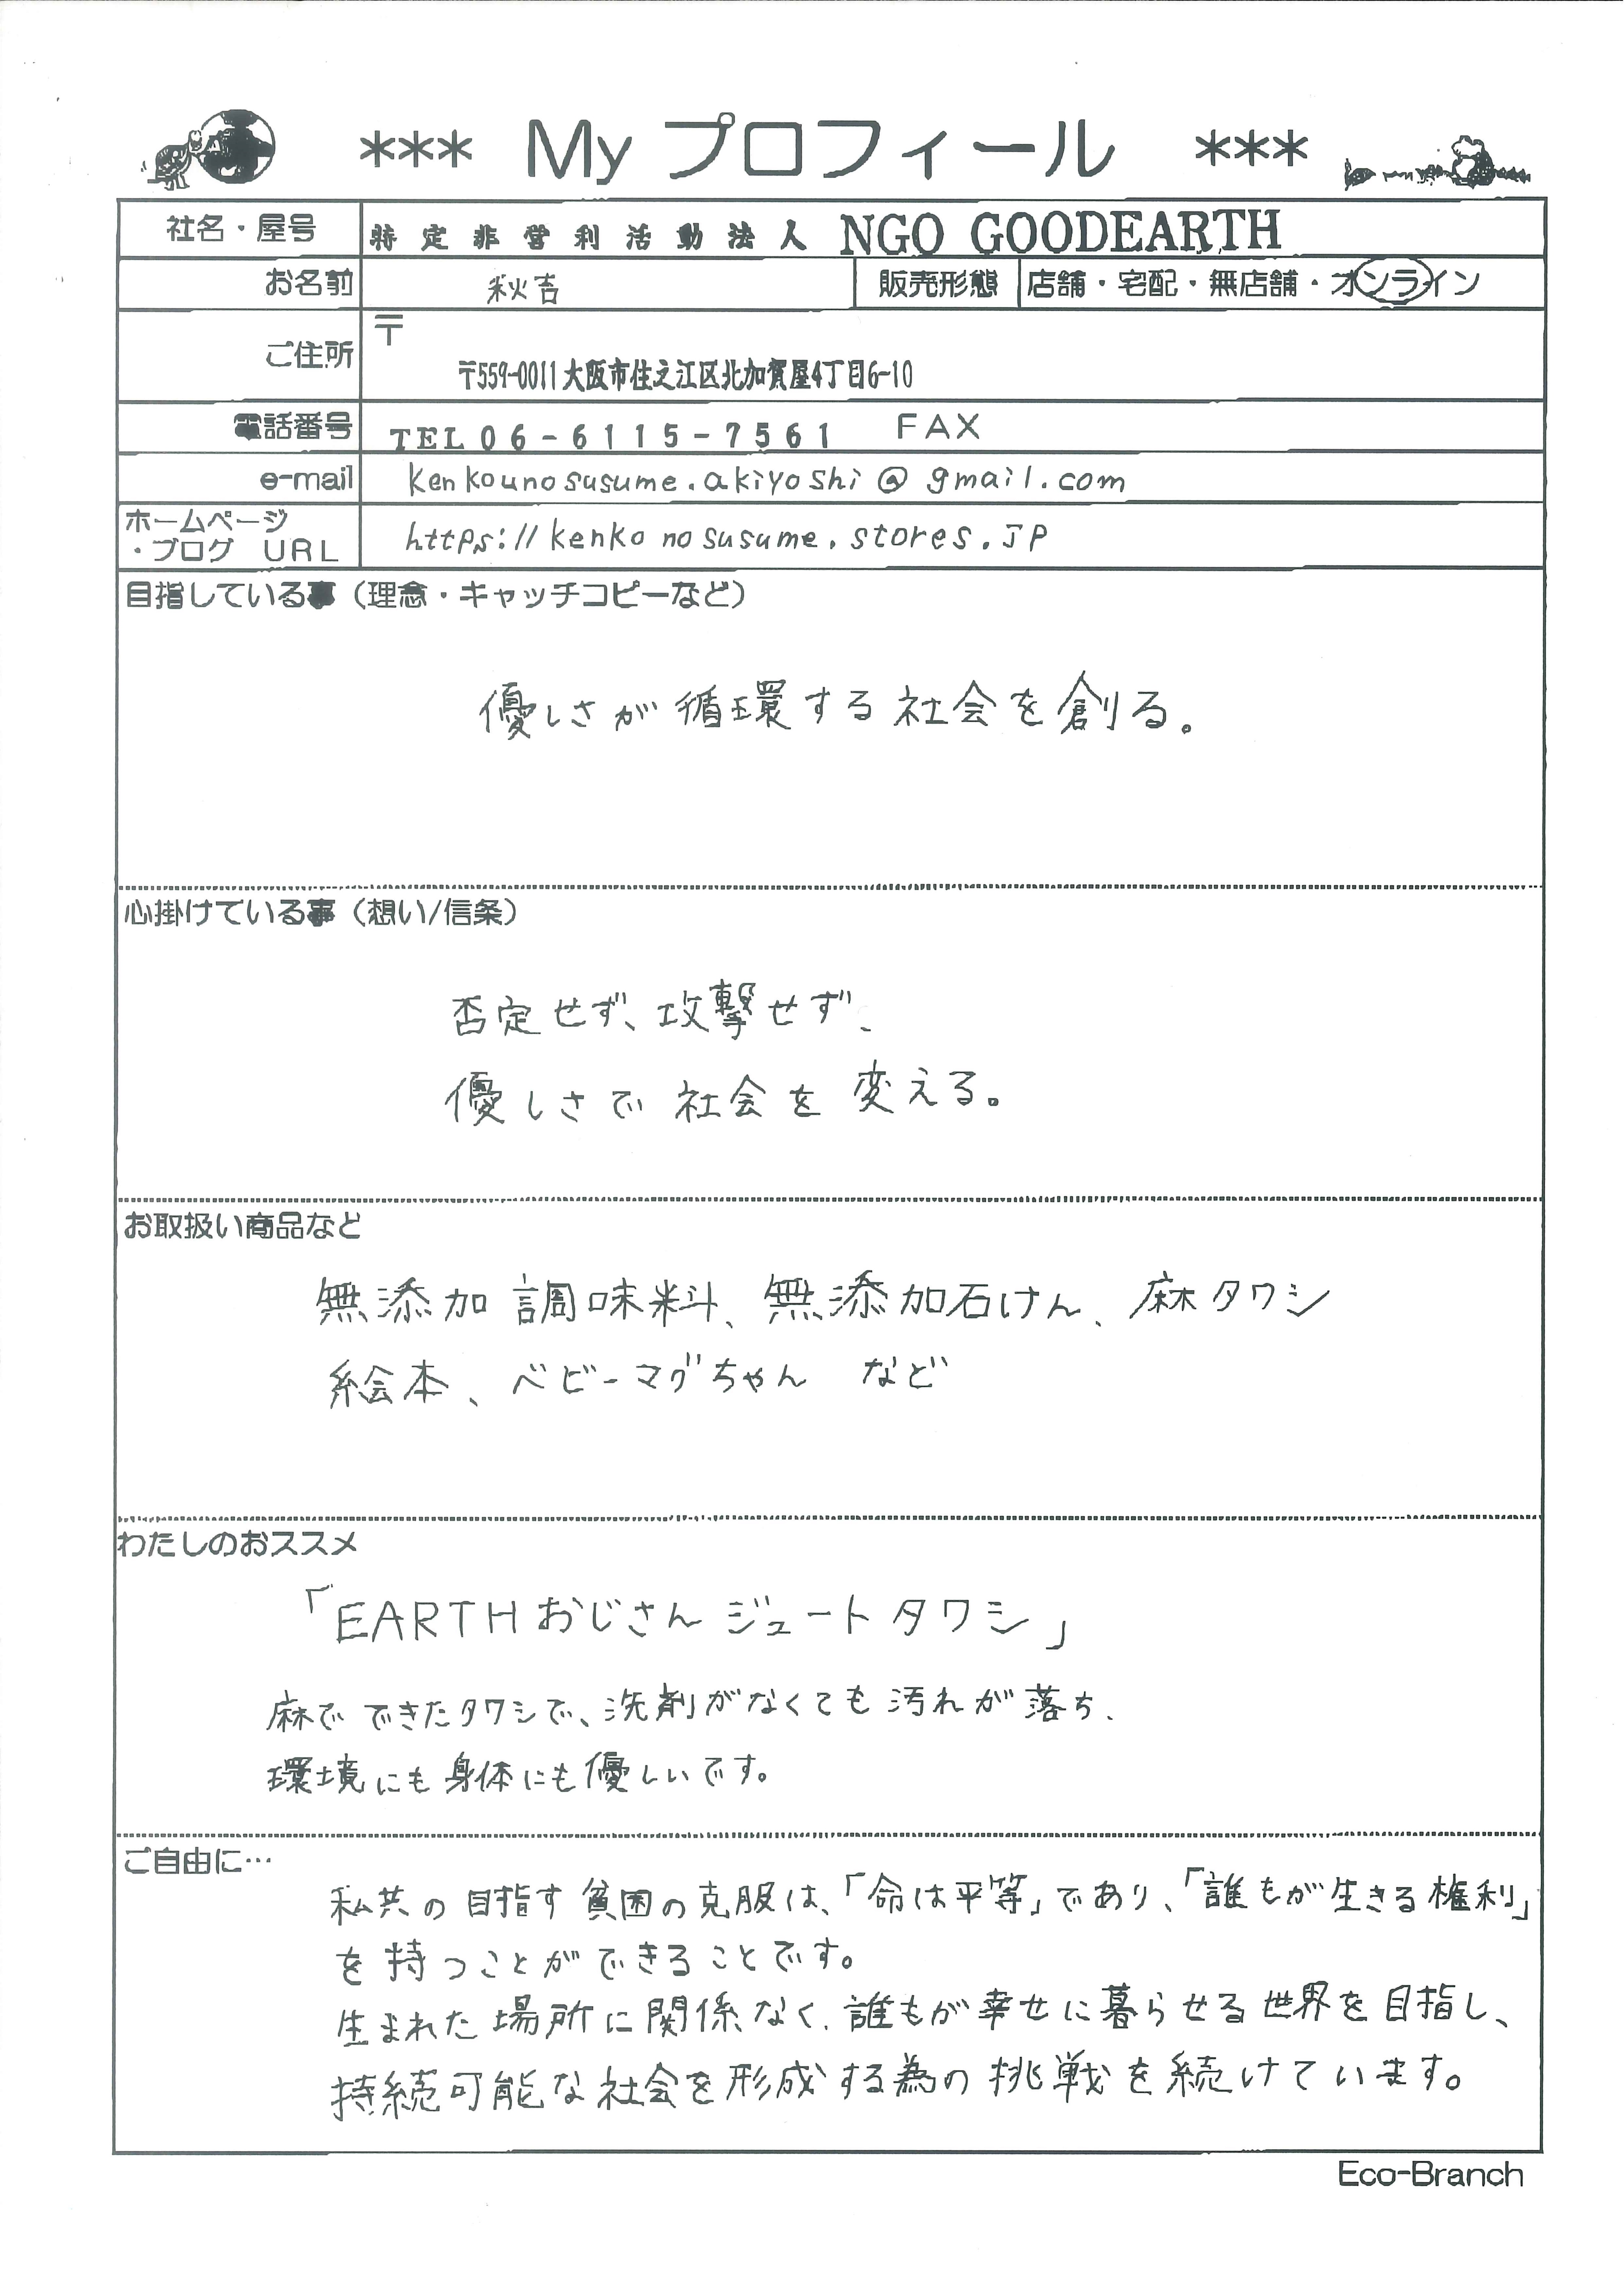 *** My プロフィール ***
社名・屋号 特定非営利活動法人 NGO GOODEARTH
お名前 秋吉 販売形態 店舗・宅配・無店舗・オンライン
ご住所 〒
〒559-0011大阪市住之江区北加賀屋4丁目6-10
電話番号 TEL 06-6115-7561 FAX
e-mail kenkounosusume.akiyoshi@gmail.com
ホームページ
・ブログ URL https://kenkonosusume.stores.jp
目指している事（理念・キャッチコピーなど）
優しさが循環する社会を創る。
心掛けている事（想い/信条）
否定せず、攻撃せず、
優しさで社会を変える。
お取扱い商品など
無添加調味料、無添加石けん、麻タワシ
絵本、ベビーマグちゃん など
わたしのおススメ
「EARTHおじさん ジュートタワシ」
麻でできたタワシで、洗剤がなくても汚れが落ち、
環境にも身体にも優しいです。
ご自由に…
私共の目指す貧困の克服は、「命は平等」であり、「誰もが生きる権利」
を持つことができることです。
生まれた場所に関係なく、誰もが幸せに暮らせる世界を目指し、
持続可能な社会を形成する為の挑戦を続けています。
Eco-Branch